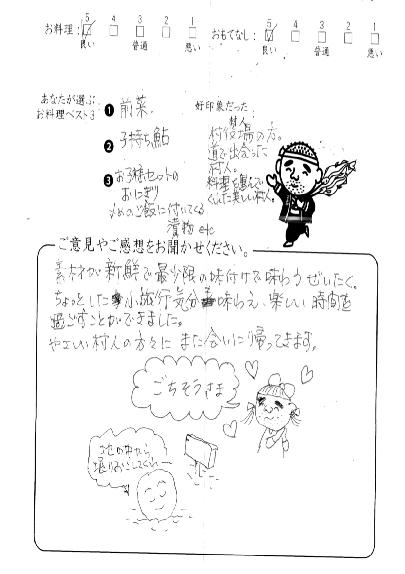 お料理: 5 4 3 2 1 おもてなし: 5 4 3 2 1
良い 普通 悪い 良い 普通 悪い
あなたが選ぶ
お料理ベスト3
❶ 前菜
❷ 子持ち鮎
❸ お子様セットの
おにぎり
〆めのご飯に付いてくる
漬物 etc
好印象だった
村人:
村役場の方。
道で出会った
村人。
料理を運んで
くれた楽しい村人。
ご意見やご感想をお聞かせください。
素材が新鮮で最少限の味付けで味わうぜいたく。
ちょっとした小旅行気分味わえ、楽しい時間を
過ごすことができました。
やさしい村人の方々にまた会いに帰ってきます。
ごちそうさま